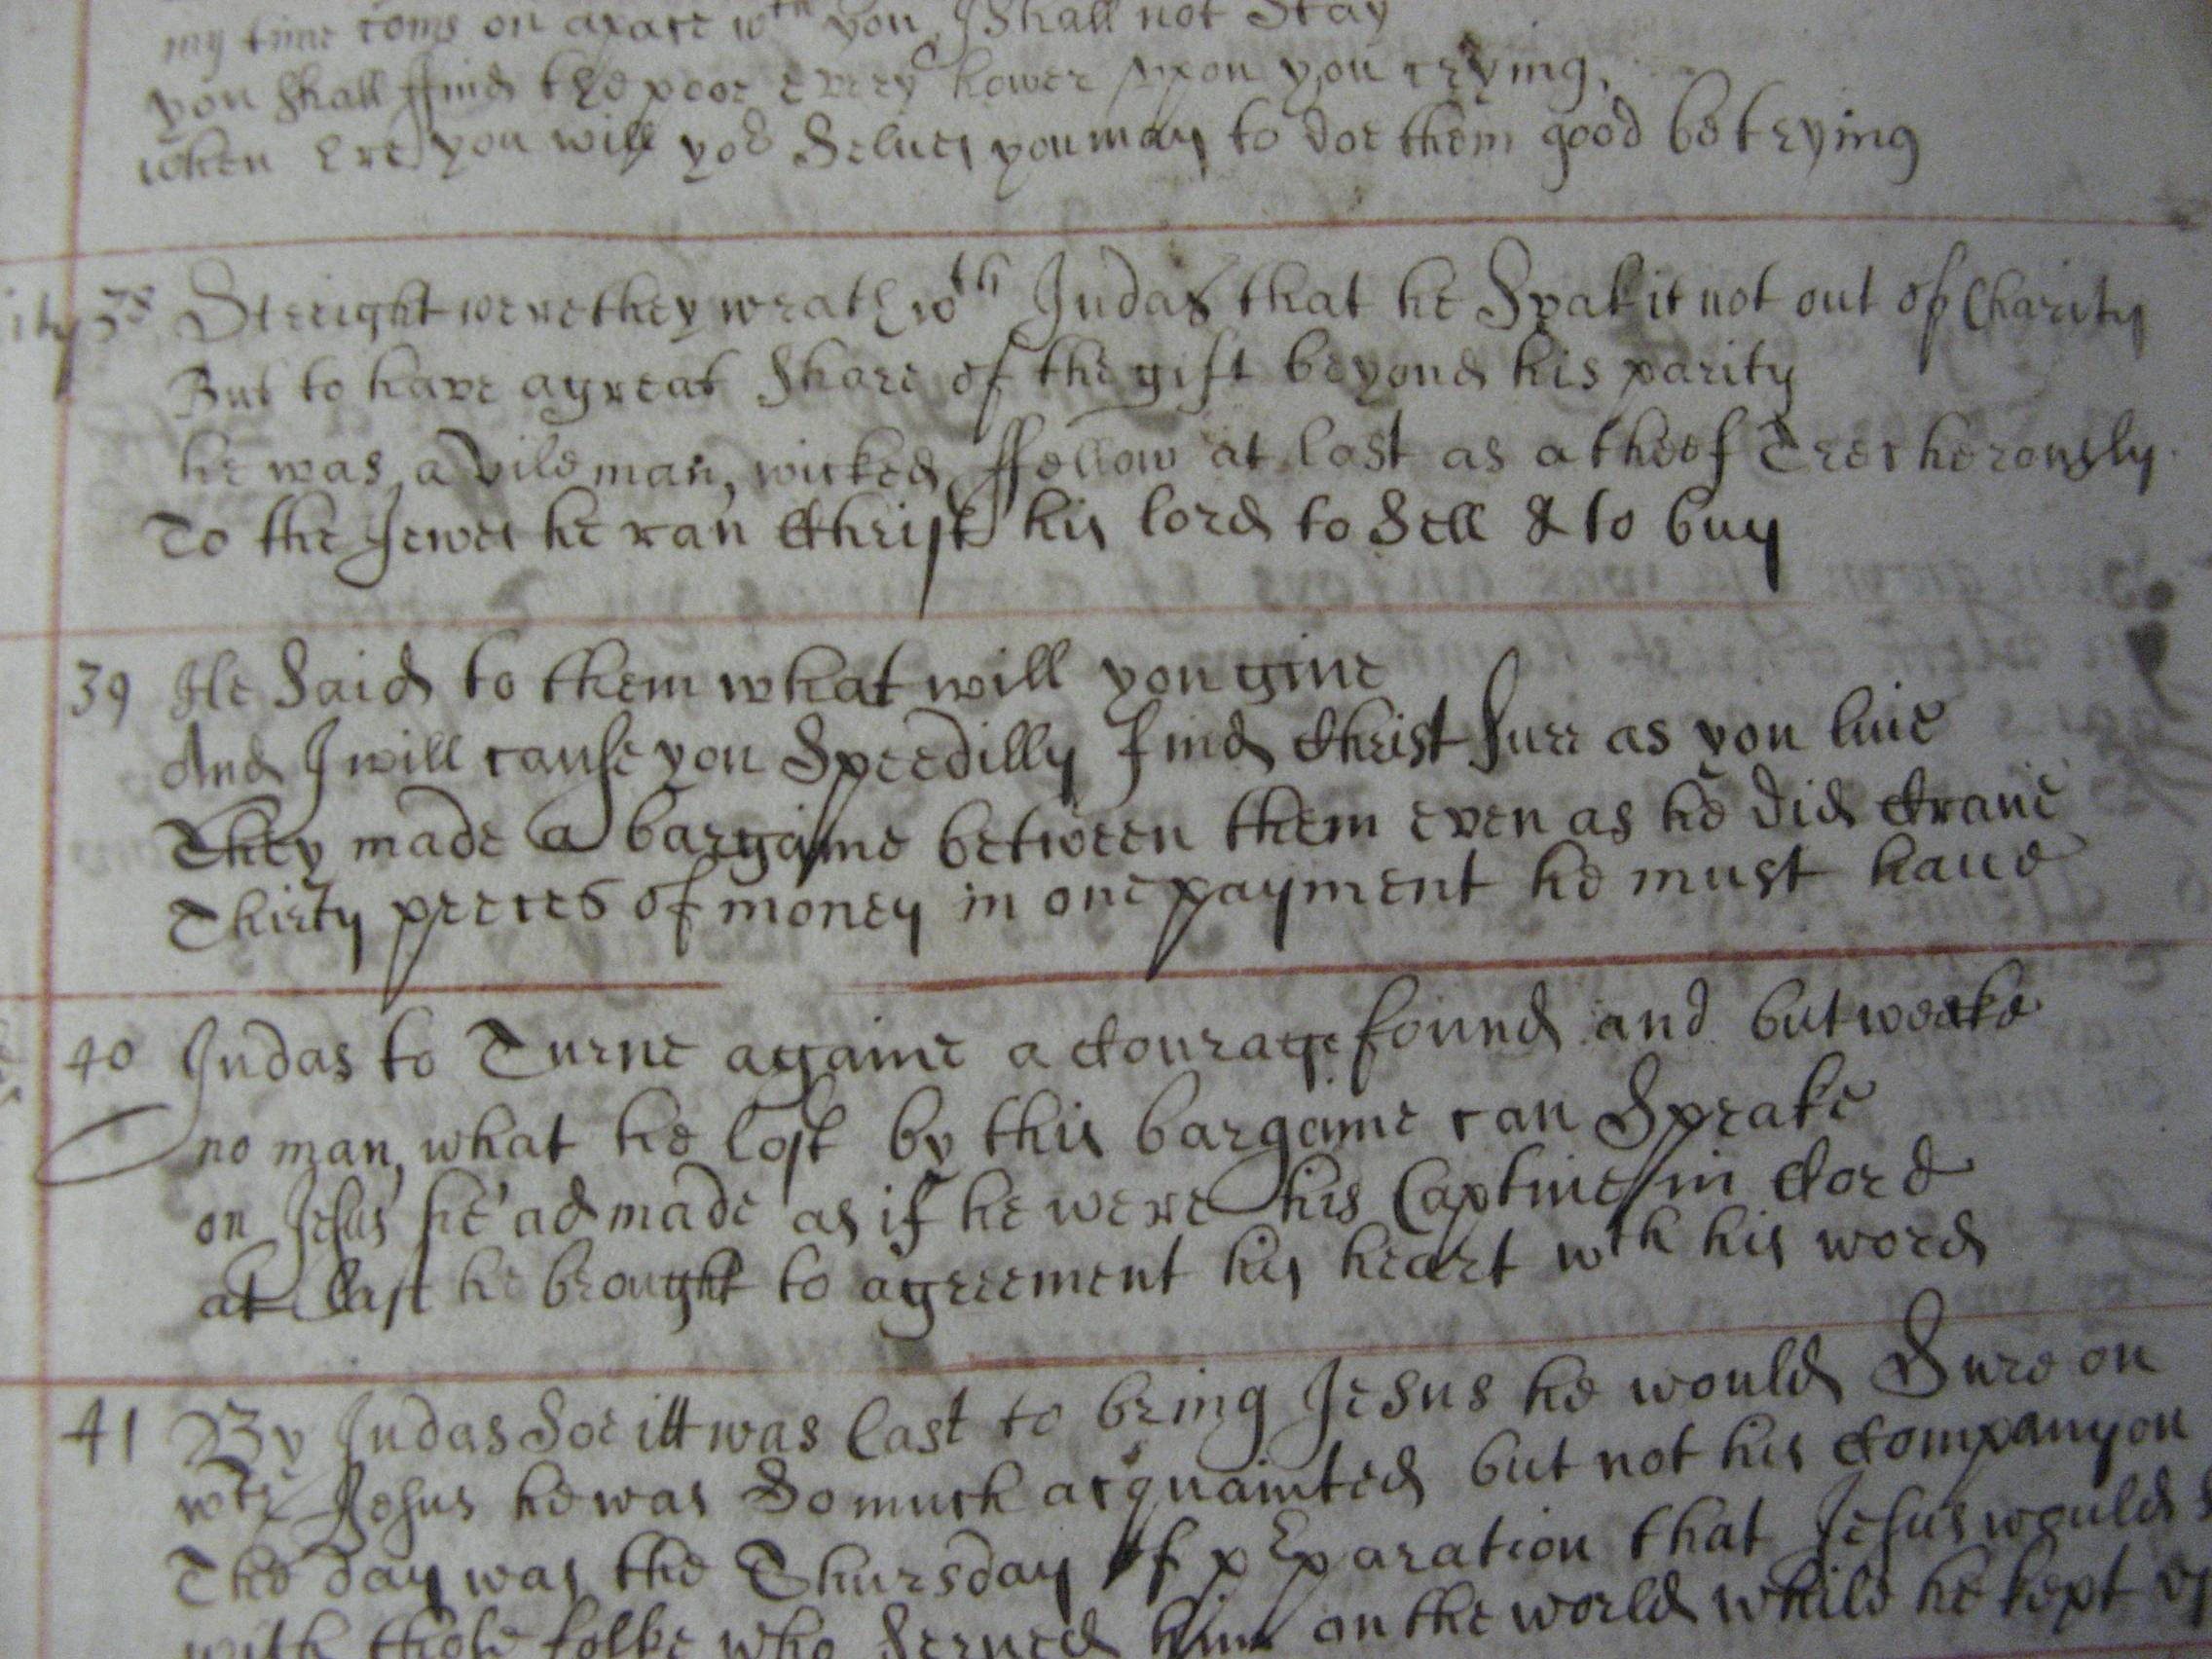 my time coms on apace wth you, I shall not Stay
you shall ffind the poor every hower vpon you crying,
when ere you will yor Selues you may to doe them good be trying
ity 38 Streight were they wrath wth Judas that he Spak it not out of Charity
But to have a great Share of the gift beyond his parity
he was, a Vile man, wicked, ffellow at last as a theef Trecherously.
To the Jewes he ran Christ his lord to Sell & to buy
39 He Said to them what will you giue
And I will cause you Speedilly find Christ sure as you liue
They made a bargaine between them even as he did Craue
Thirty peeces of money in one payment he must haue
40 Judas to Turne againe a Courage found and but weake
no man, what he lost by this bargaine can Speake
on Jesus he'ad made as if he were his Captiue in Cord
at last he brought to agreement his heart wth his word
41 By Judas Soe itt was Cast to bring Jesus he would Sure on
wth Jesus he was So much acquainted but not his Companyon
The day was the Thursday of pEparation that Jesus would
with those folke who Serued him on the world while he kept vp